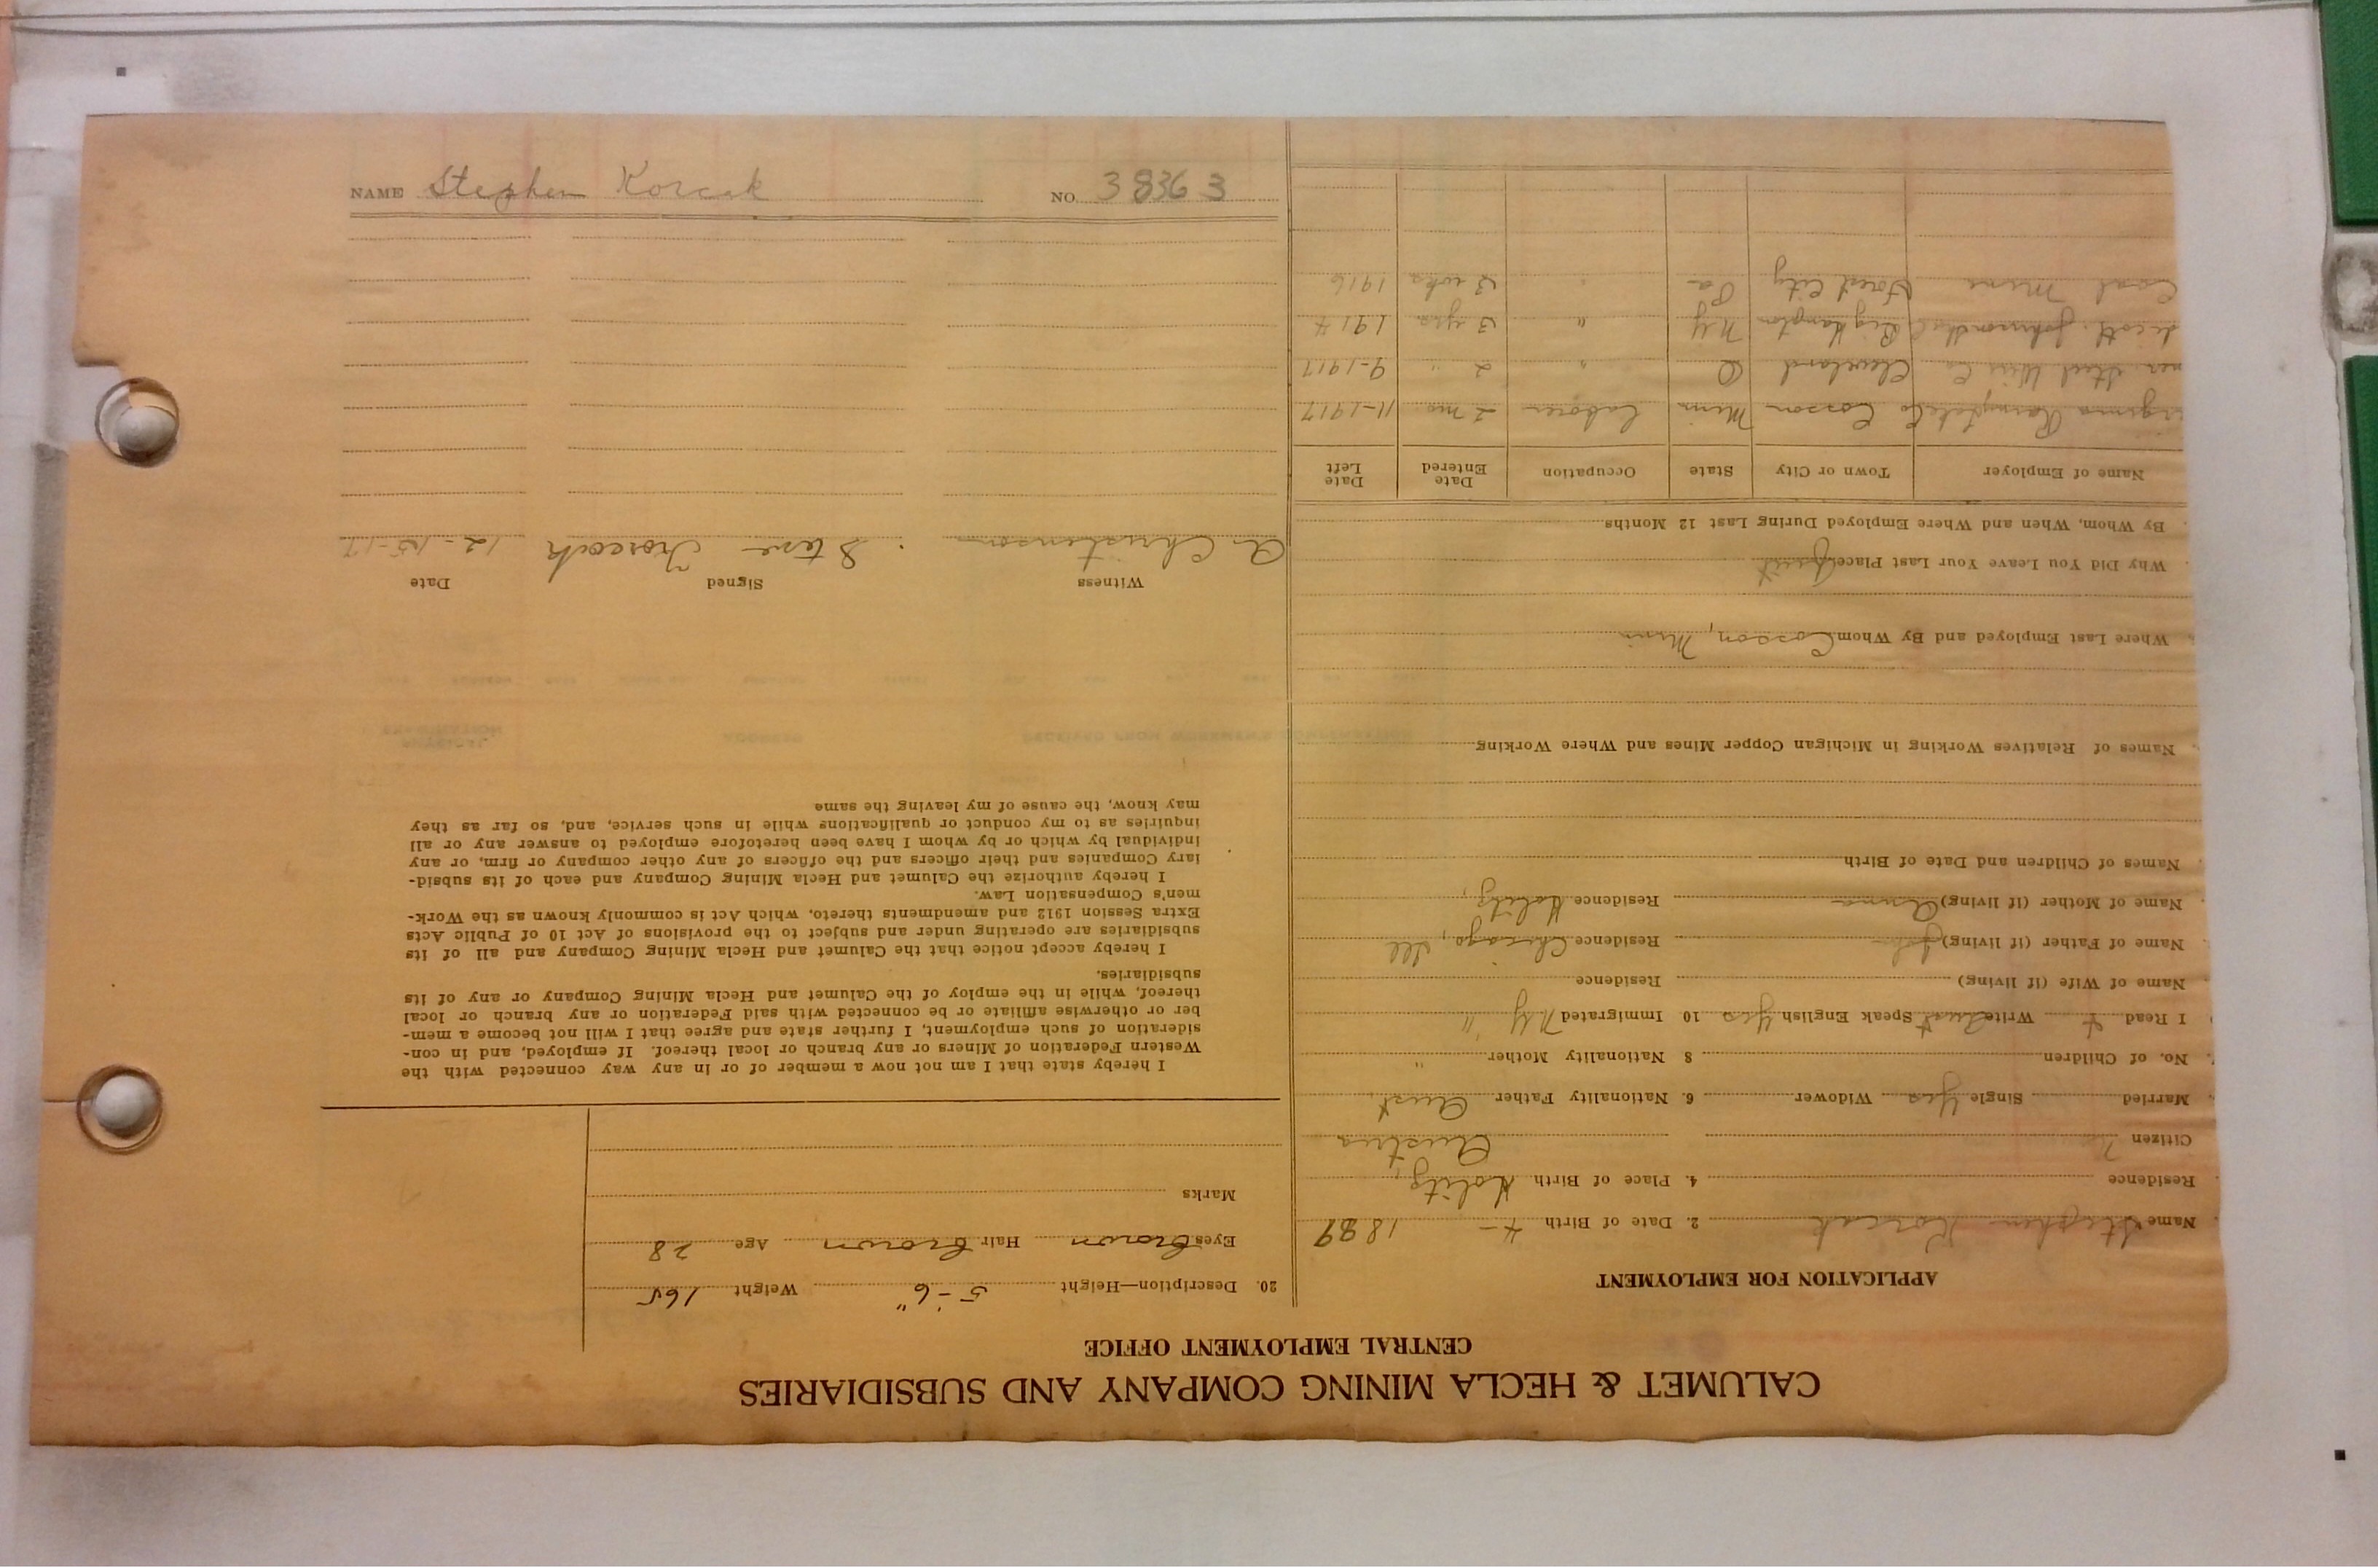 CALUMET & HECLA MINING COMPANY AND SUBSIDIARIES
CENTRAL EMPLOYMENT OFFICE
APPLICATION FOR EMPLOYMENT
Name Stephen Korcak 2. Date of Birth 4- 1889
Residence 4. Place of Birth Kolitz,
Citizen Austria
Married Single Yes Widower 6. Nationality Father Aust.
No. of Children 8 Nationality Mother "
I Read Write Aust Speak English Yes 10 Immigrated NY "
Name of Wife (if living) Residence
Name of Father (if living) Residence Chicago, Ill
Name of Mother (if living) Anna Residence Kolitz,
Names of Children and Date of Birth
Names of Relatives Working in Michigan Copper Mines and Where Working
Where Last Employed and By Whom Cosson, Minn
Why Did You Leave Your Last Place Quit
By Whom, When and Where Employed During Last 12 Months
Name of Employer Town or City State Occupation Date Entered Date Left
Co Cosson Minn Laborer 2 mo 11-1917
Steel Wire Co Cleveland O " 2 " 9-1917
Johnson Binghampton NY " 3 yrs 1914
Coal Mine Forest City Pa " 3 wks 1916
20. Description—Height 5'-6" Weight 165
Eyes Brown Hair Brown Age 28
Marks
I hereby state that I am not now a member of or in any way connected with the
Western Federation of Miners or any branch or local thereof. If employed, and in con-
sideration of such employment, I further state and agree that I will not become a mem-
ber or otherwise affiliate or be connected with said Federation or any branch or local
thereof, while in the employ of the Calumet and Hecla Mining Company or any of its
subsidiaries.
I hereby accept notice that the Calumet and Hecla Mining Company and all of its
subsidiaries are operating under and subject to the provisions of Act 10 of Public Acts
Extra Session 1912 and amendments thereto, which Act is commonly known as the Work-
men's Compensation Law.
I hereby authorize the Calumet and Hecla Mining Company and each of its subsid-
iary Companies and their officers and the officers of any other company or firm, or any
individual by which or by whom I have been heretofore employed to answer any or all
inquiries as to my conduct or qualifications while in such service, and, so far as they
may know, the cause of my leaving the same
Witness Signed Date
A Christenson Steve Korcak 12-15-17
NAME Stephen Korcak NO. 38363